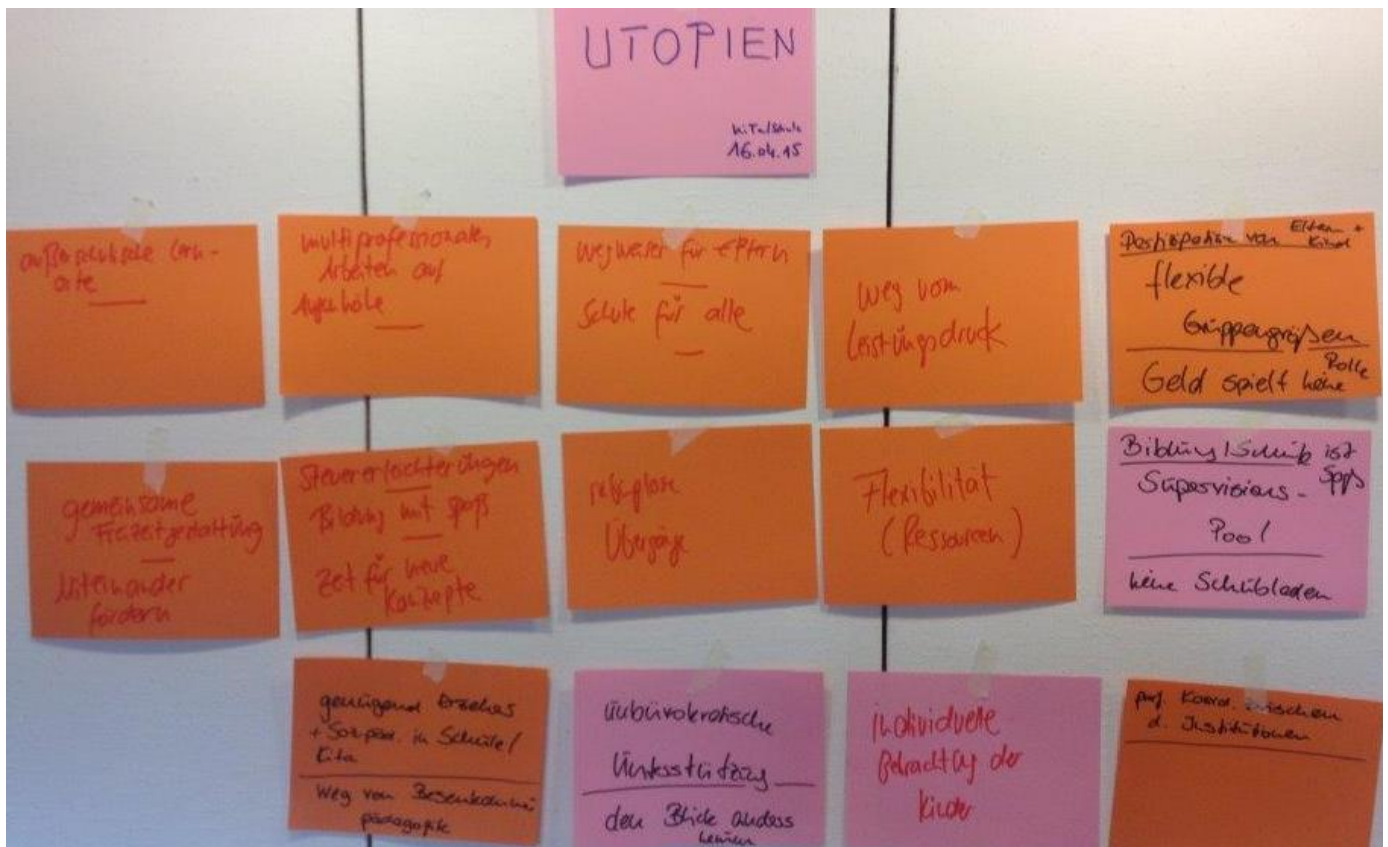 UTOPIEN
KiTa/Schule
16.04.15
außerschulische Lern-
orte
multiprofessionales
Arbeiten auf
Augenhöhe
Wegweiser für Eltern
Schule für alle
Weg vom
Leistungsdruck
Partizipation von Eltern +
Kind
flexible
Gruppengrößen
Geld spielt keine
Rolle
gemeinsame
Freizeitgestaltung
Miteinander
fördern
Steuererleichterungen
Bildung mit Spaß
Zeit für neue
Konzepte
reibungslose
Übergänge
Flexibilität
(Ressourcen)
Bildung/Schule ist
Spaß
Supervisions-
Pool
keine Schubladen
genügend Erzieher
+ Sozpäd. in Schule/
Kita
Weg von Besenkammer
pädagogik
unbürokratische
Unterstützung
den Blick anders
individuelle
Betrachtung der
Kinder
prof. Koord. zwischen
d. Institutionen